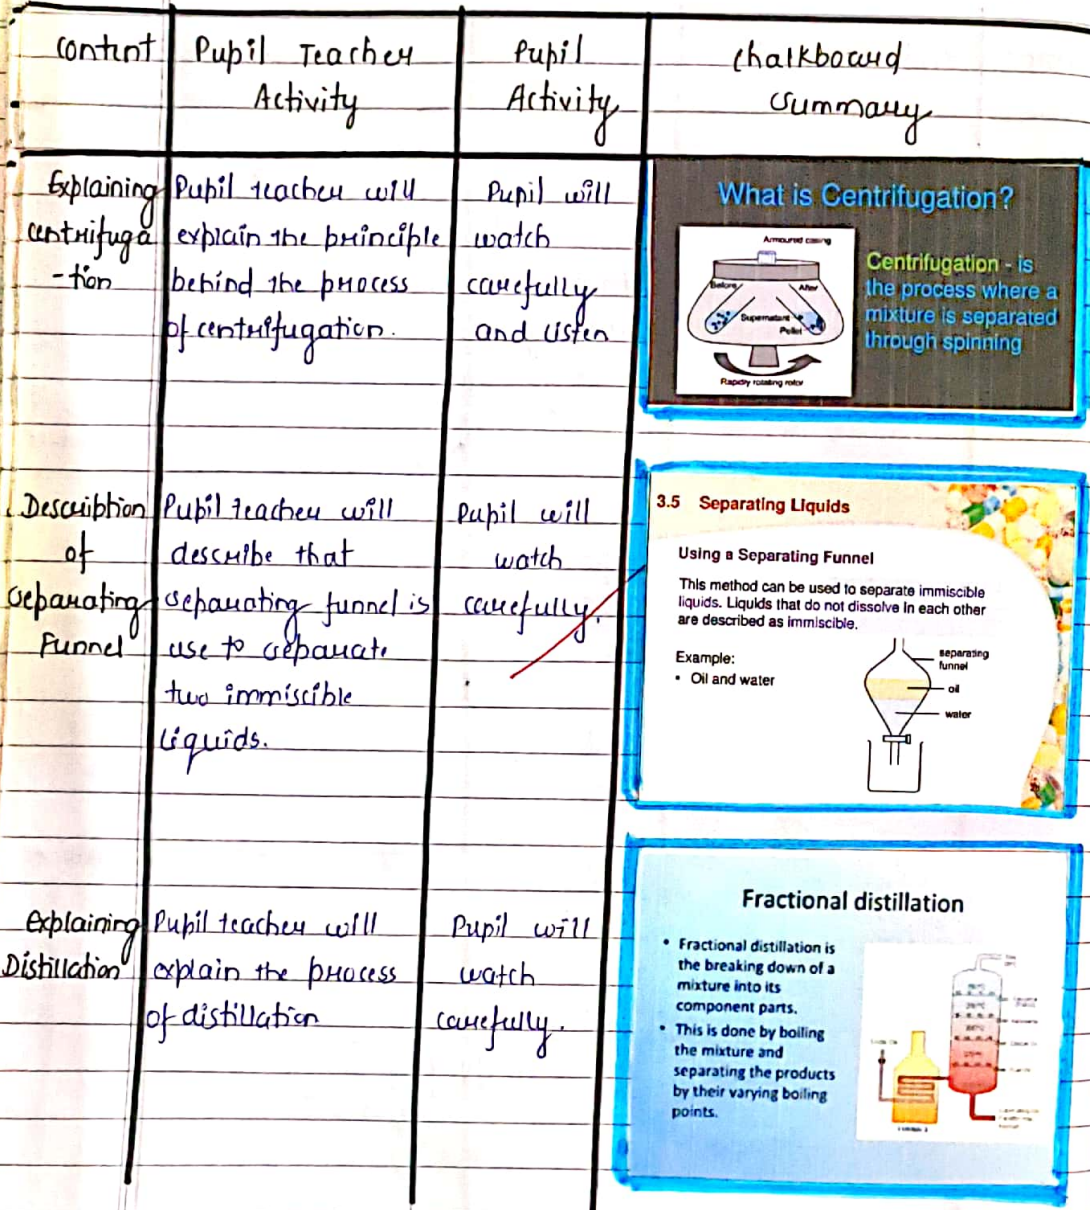 Content
Pupil Teacher
Activity
Pupil
Activity
Chalkboard
Summary
Explaining
centrifuga
-tion
Pupil teacher will
explain the principle
behind the process
of centrifugation.
Pupil will
watch
carefully
and listen
What is Centrifugation?
Armoured casing
Before
After
Supernatant
Pellet
Rapidly rotating rotor
Centrifugation - is
the process where a
mixture is separated
through spinning
Description
of
separating
Funnel
Pupil teacher will
describe that
separating funnel is
use to separate
two immiscible
liquids.
Pupil will
watch
carefully.
3.5 Separating Liquids
Using a Separating Funnel
This method can be used to separate immiscible
liquids. Liquids that do not dissolve in each other
are described as immiscible.
Example:
• Oil and water
separating
funnel
oil
water
Explaining
Distillation
Pupil teacher will
explain the process
of distillation
Pupil will
watch
carefully.
Fractional distillation
• Fractional distillation is
the breaking down of a
mixture into its
component parts.
• This is done by boiling
the mixture and
separating the products
by their varying boiling
points.